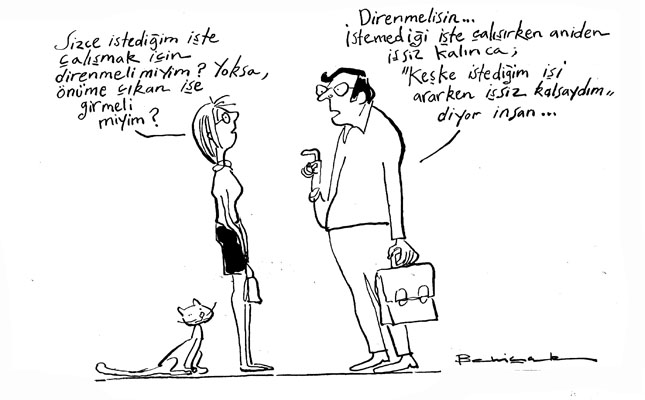 Sizce istediğim işte
çalışmak için
direnmeli miyim? Yoksa,
önüme çıkan işe
girmeli
miyim?
Direnmelisin...
İstemediği işte çalışırken aniden
işsiz kalınca;
"Keşke istediğim işi
ararken işsiz kalsaydım"
diyor insan...
Behiçak